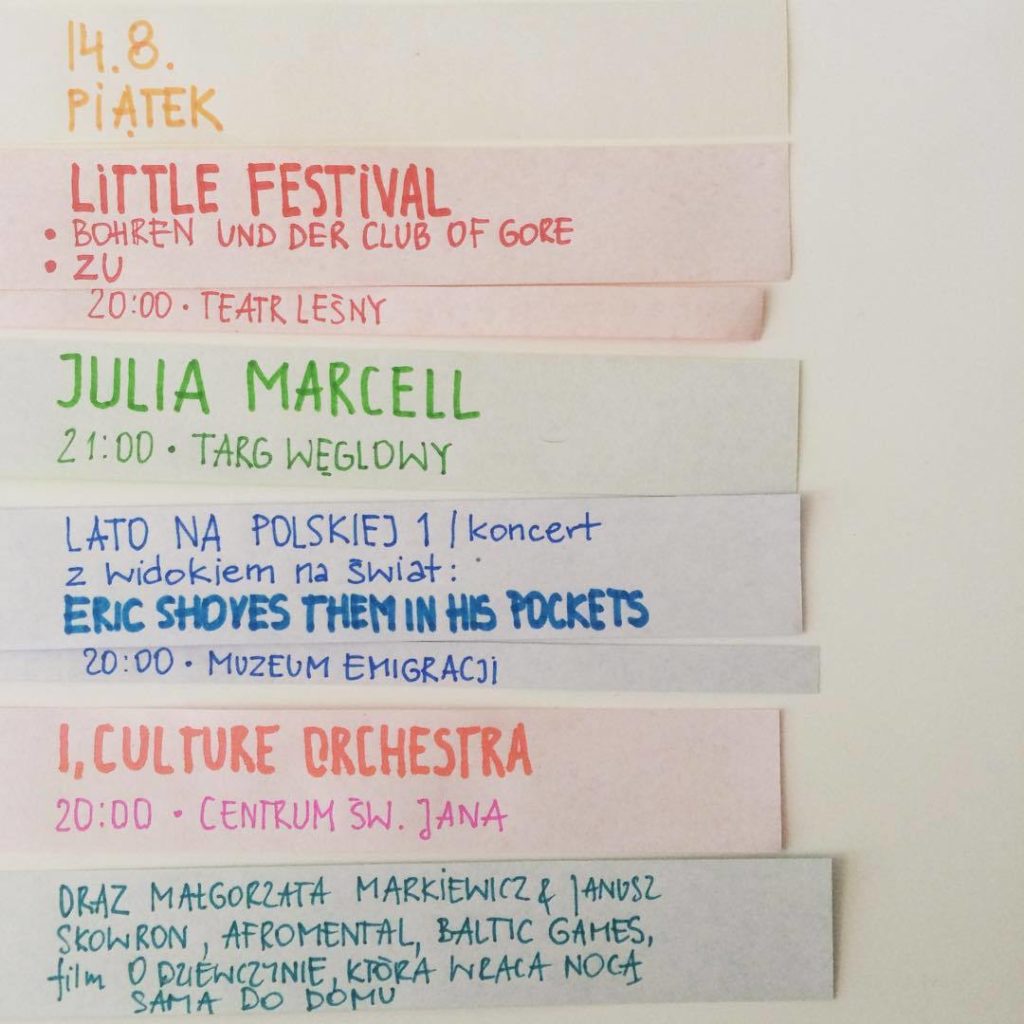 14.8.
PIĄTEK
LiTTLE FESTiVAL
• BOHREN UND DER CLUB OF GORE
• ZU
20:00 • TEATR LEŚNY
JULIA MARCELL
21:00 • TARG WĘGLOWY
LATO NA POLSKIEJ 1 / koncert
z widokiem na świat:
ERIC SHOVES THEM IN HIS POCKETS
20:00 • MUZEUM EMIGRACJI
I, CULTURE ORCHESTRA
20:00 • CENTRUM ŚW. JANA
ORAZ MAŁGORZATA MARKIEWICZ & JANUSZ
SKOWRON, AFROMENTAL, BALTIC GAMES,
film O DZIEWCZYNIE, KTÓRA WRACA NOCĄ
SAMA DO DOMU